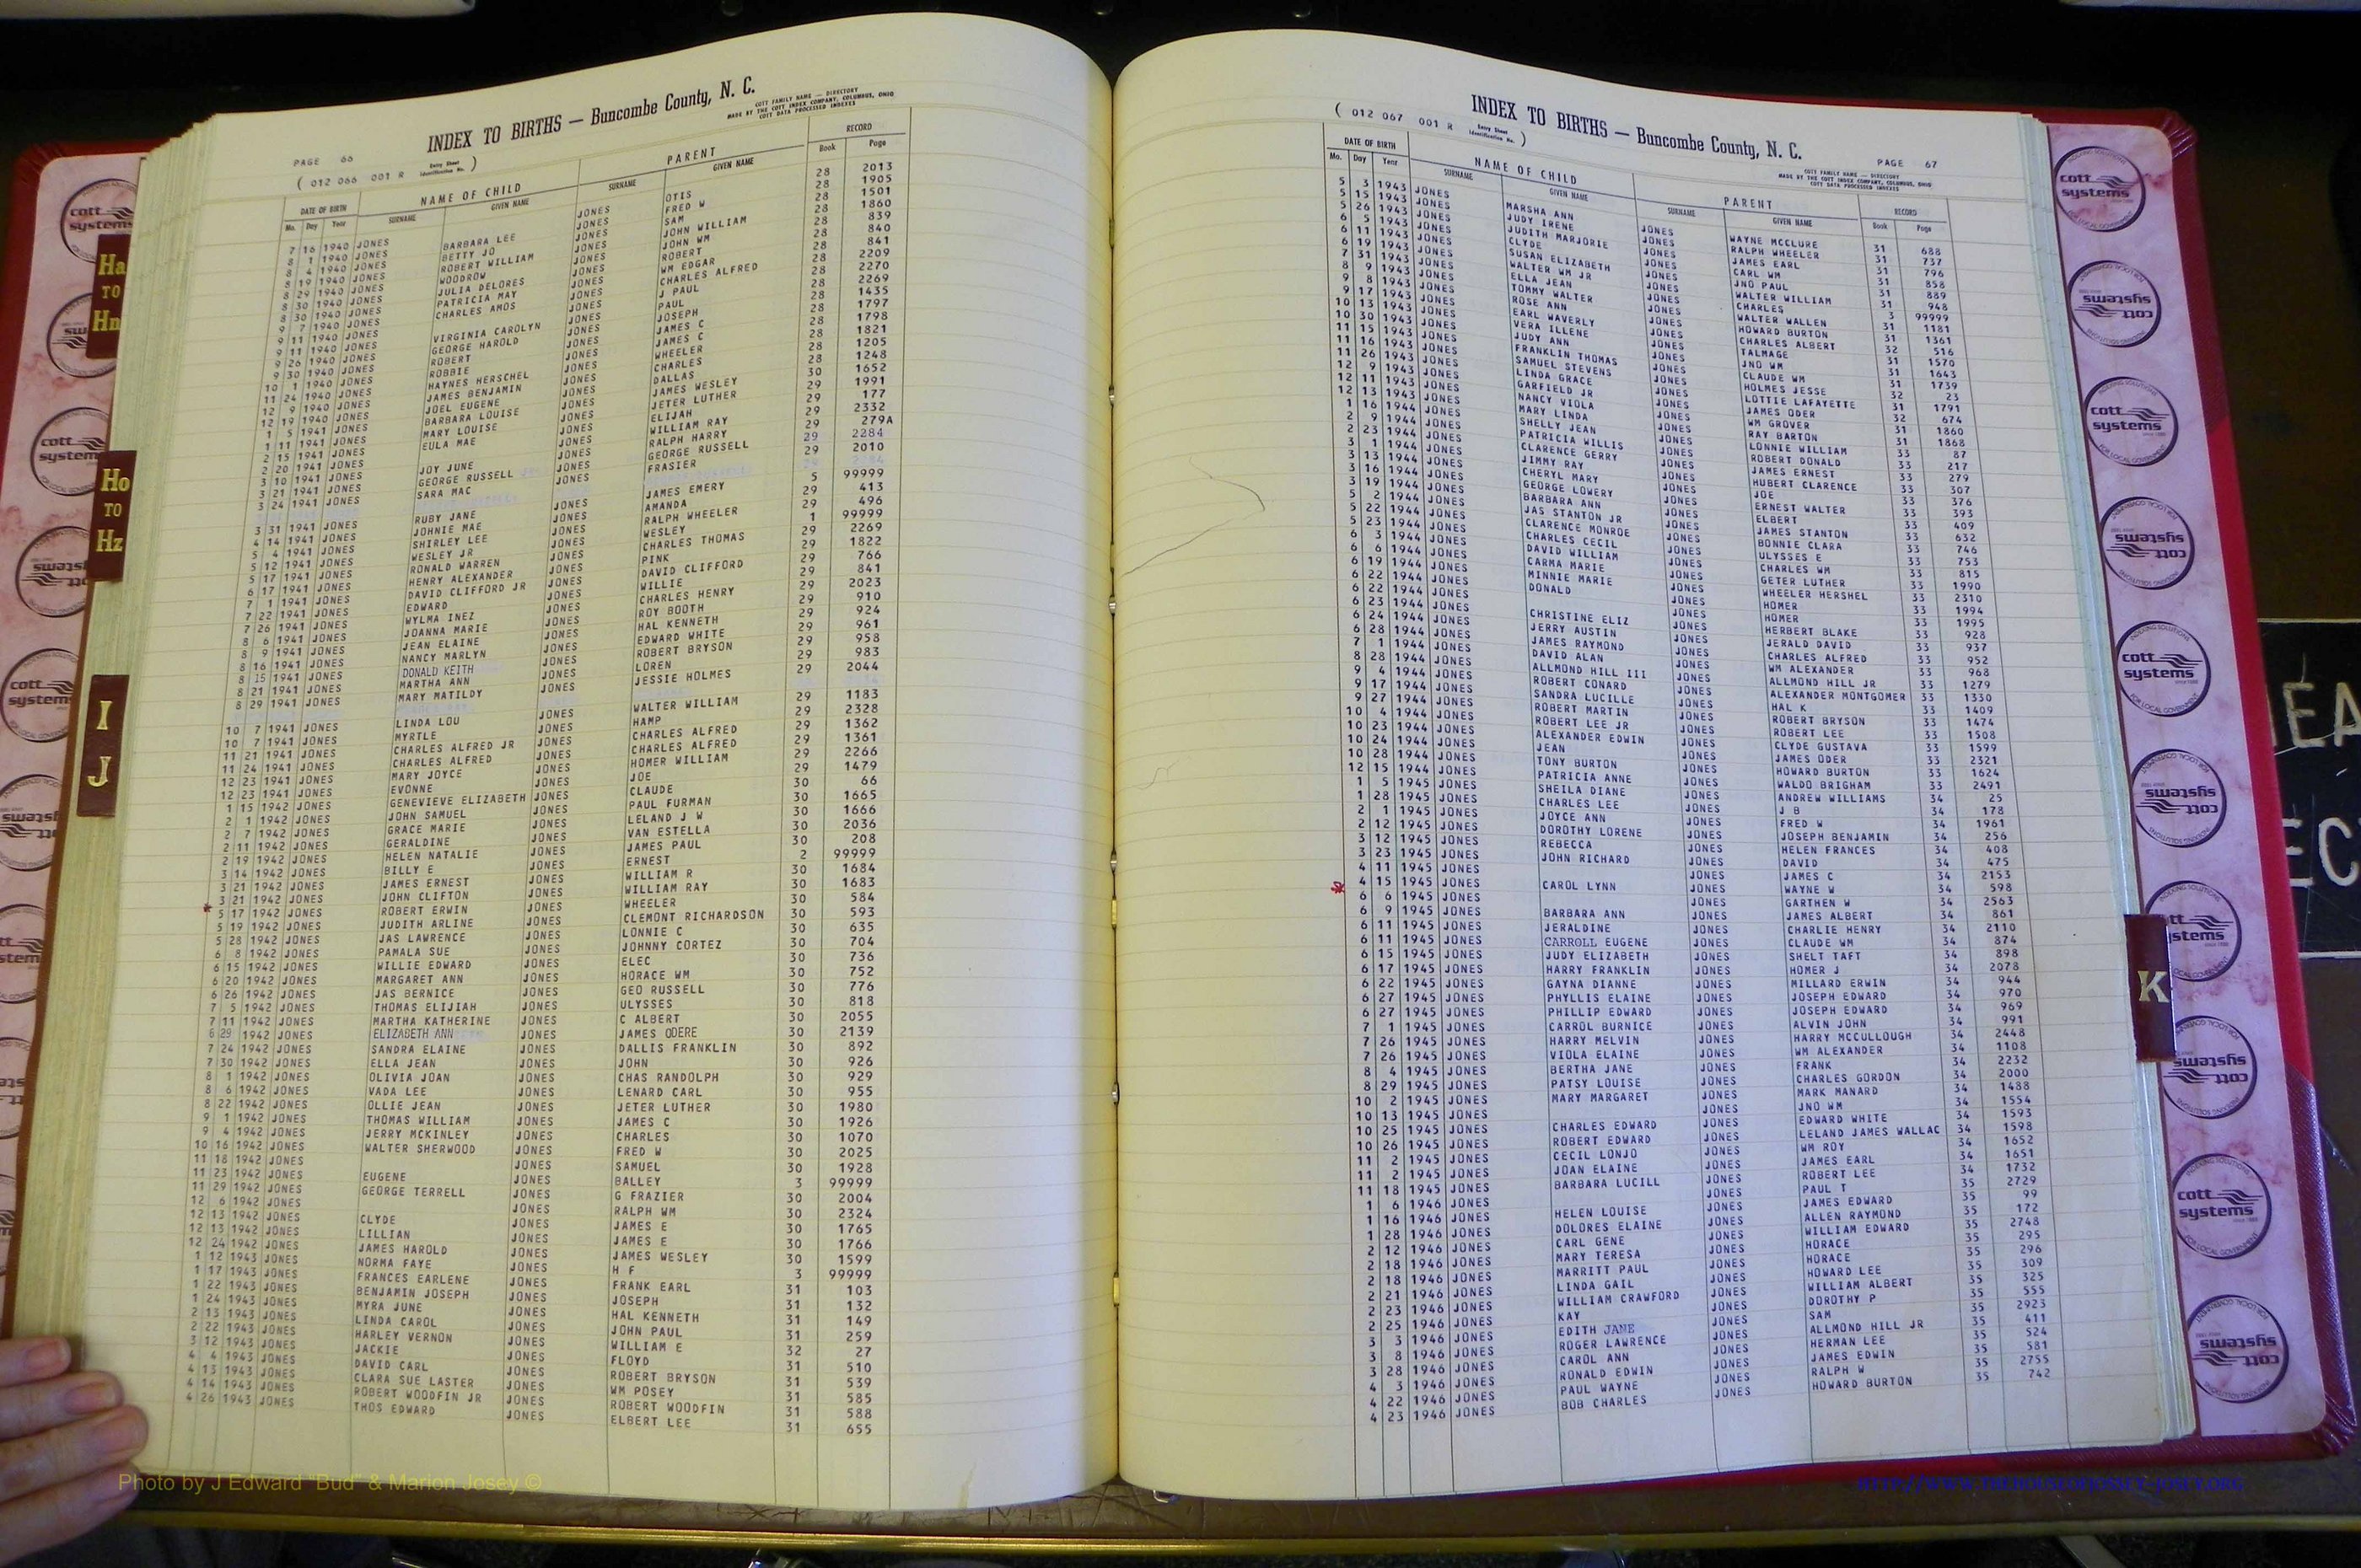 INDEX TO BIRTHS — Buncombe County, N. C.
COTT FAMILY NAME — DIRECTORY
MADE BY THE COTT INDEX COMPANY, COLUMBUS, OHIO
COTT DATA PROCESSED INDEXES
PAGE 66
( 012 066 001 R Entry Sheet Identification No. )
DATE OF BIRTH NAME OF CHILD PARENT RECORD
Mo. Day Year SURNAME GIVEN NAME SURNAME GIVEN NAME Book Page
7 16 1940 JONES
8 1 1940 JONES
8 4 1940 JONES
8 19 1940 JONES
8 29 1940 JONES
8 30 1940 JONES
8 30 1940 JONES
9 7 1940 JONES
9 11 1940 JONES
9 11 1940 JONES
9 26 1940 JONES
9 30 1940 JONES
10 1 1940 JONES
11 24 1940 JONES
12 9 1940 JONES
12 19 1940 JONES
1 5 1941 JONES
1 11 1941 JONES
2 15 1941 JONES
2 20 1941 JONES
3 10 1941 JONES
3 21 1941 JONES
3 24 1941 JONES
3 31 1941 JONES
4 14 1941 JONES
5 4 1941 JONES
5 12 1941 JONES
5 17 1941 JONES
6 17 1941 JONES
7 1 1941 JONES
7 22 1941 JONES
7 26 1941 JONES
8 6 1941 JONES
8 9 1941 JONES
8 16 1941 JONES
8 15 1941 JONES
8 21 1941 JONES
8 29 1941 JONES
10 7 1941 JONES
10 7 1941 JONES
11 21 1941 JONES
11 24 1941 JONES
12 23 1941 JONES
12 23 1941 JONES
1 15 1942 JONES
2 1 1942 JONES
2 7 1942 JONES
2 11 1942 JONES
2 19 1942 JONES
3 14 1942 JONES
3 21 1942 JONES
3 21 1942 JONES
5 17 1942 JONES
5 19 1942 JONES
5 28 1942 JONES
6 8 1942 JONES
6 15 1942 JONES
6 20 1942 JONES
6 26 1942 JONES
7 5 1942 JONES
7 11 1942 JONES
6 29 1942 JONES
7 24 1942 JONES
7 30 1942 JONES
8 1 1942 JONES
8 6 1942 JONES
8 22 1942 JONES
9 1 1942 JONES
9 4 1942 JONES
10 16 1942 JONES
11 18 1942 JONES
11 23 1942 JONES
11 29 1942 JONES
12 6 1942 JONES
12 13 1942 JONES
12 13 1942 JONES
12 24 1942 JONES
1 12 1943 JONES
1 17 1943 JONES
1 22 1943 JONES
1 24 1943 JONES
2 13 1943 JONES
2 22 1943 JONES
3 12 1943 JONES
4 4 1943 JONES
4 13 1943 JONES
4 14 1943 JONES
4 26 1943 JONES
BARBARA LEE
BETTY JO
ROBERT WILLIAM
WOODROW
JULIA DELORES
PATRICIA MAY
CHARLES AMOS
VIRGINIA CAROLYN
GEORGE HAROLD
ROBERT
ROBBIE
HAYNES HERSCHEL
JAMES BENJAMIN
JOEL EUGENE
BARBARA LOUISE
MARY LOUISE
EULA MAE
JOY JUNE
GEORGE RUSSELL
SARA MAC
RUBY JANE
JOHNIE MAE
SHIRLEY LEE
WESLEY JR
RONALD WARREN
HENRY ALEXANDER
DAVID CLIFFORD JR
EDWARD
WYLMA INEZ
JOANNA MARIE
JEAN ELAINE
NANCY MARLYN
DONALD KEITH
MARTHA ANN
MARY MATILDY
LINDA LOU
MYRTLE
CHARLES ALFRED JR
CHARLES ALFRED
MARY JOYCE
EVONNE
GENEVIEVE ELIZABETH
JOHN SAMUEL
GRACE MARIE
GERALDINE
HELEN NATALIE
BILLY E
JAMES ERNEST
JOHN CLIFTON
ROBERT ERWIN
JUDITH ARLINE
JAS LAWRENCE
PAMALA SUE
WILLIE EDWARD
MARGARET ANN
JAS BERNICE
THOMAS ELIJIAH
MARTHA KATHERINE
ELIZABETH ANN
SANDRA ELAINE
ELLA JEAN
OLIVIA JOAN
VADA LEE
OLLIE JEAN
THOMAS WILLIAM
JERRY MCKINLEY
WALTER SHERWOOD
EUGENE
GEORGE TERRELL
CLYDE
LILLIAN
JAMES HAROLD
NORMA FAYE
FRANCES EARLENE
BENJAMIN JOSEPH
MYRA JUNE
LINDA CAROL
HARLEY VERNON
JACKIE
DAVID CARL
CLARA SUE LASTER
ROBERT WOODFIN JR
THOS EDWARD
JONES OTIS
JONES FRED W
JONES SAM
JONES JOHN WILLIAM
JONES JOHN WM
JONES ROBERT
JONES WM EDGAR
JONES CHARLES ALFRED
JONES J PAUL
JONES PAUL
JONES JOSEPH
JONES JAMES C
JONES JAMES C
JONES WHEELER
JONES CHARLES
JONES DALLAS
JONES JAMES WESLEY
JONES JETER LUTHER
JONES ELIJAH
JONES WILLIAM RAY
JONES RALPH HARRY
JONES GEORGE RUSSELL
JONES FRASIER
JONES JAMES EMERY
JONES AMANDA
JONES RALPH WHEELER
JONES WESLEY
JONES CHARLES THOMAS
JONES PINK
JONES DAVID CLIFFORD
JONES WILLIE
JONES CHARLES HENRY
JONES ROY BOOTH
JONES HAL KENNETH
JONES EDWARD WHITE
JONES ROBERT BRYSON
JONES LOREN
JONES JESSIE HOLMES
JONES WALTER WILLIAM
JONES HAMP
JONES CHARLES ALFRED
JONES CHARLES ALFRED
JONES HOMER WILLIAM
JONES JOE
JONES CLAUDE
JONES PAUL FURMAN
JONES LELAND J W
JONES VAN ESTELLA
JONES JAMES PAUL
JONES ERNEST
JONES WILLIAM R
JONES WILLIAM RAY
JONES WHEELER
JONES CLEMONT RICHARDSON
JONES LONNIE C
JONES JOHNNY CORTEZ
JONES ELEC
JONES HORACE WM
JONES GEO RUSSELL
JONES ULYSSES
JONES C ALBERT
JONES JAMES ODERE
JONES DALLIS FRANKLIN
JONES JOHN
JONES CHAS RANDOLPH
JONES LENARD CARL
JONES JETER LUTHER
JONES JAMES C
JONES CHARLES
JONES FRED W
JONES SAMUEL
JONES BALLEY
JONES G FRAZIER
JONES RALPH WM
JONES JAMES E
JONES JAMES E
JONES JAMES WESLEY
JONES H F
JONES FRANK EARL
JONES JOSEPH
JONES HAL KENNETH
JONES JOHN PAUL
JONES WILLIAM E
JONES FLOYD
JONES ROBERT BRYSON
JONES WM POSEY
JONES ROBERT WOODFIN
JONES ELBERT LEE
28 2013
28 1905
28 1501
28 1860
28 839
28 840
28 841
28 2209
28 2270
28 2269
28 1435
28 1797
28 1798
28 1821
28 1205
28 1248
30 1652
29 1991
29 177
29 2332
29 279A
29 2284
29 2010
5 99999
29 413
29 496
1 99999
29 2269
29 1822
29 766
29 841
29 2023
29 910
29 924
29 961
29 958
29 983
29 2044
29 1183
29 2328
29 1362
29 1361
29 2266
29 1479
30 66
30 1665
30 1666
30 2036
30 208
2 99999
30 1684
30 1683
30 584
30 593
30 635
30 704
30 736
30 752
30 776
30 818
30 2055
30 2139
30 892
30 926
30 929
30 955
30 1980
30 1926
30 1070
30 2025
30 1928
3 99999
30 2004
30 2324
30 1765
30 1766
30 1599
3 99999
31 103
31 132
31 149
31 259
32 27
31 510
31 539
31 585
31 588
31 655
INDEX TO BIRTHS — Buncombe County, N. C.
COTT FAMILY NAME — DIRECTORY
MADE BY THE COTT INDEX COMPANY, COLUMBUS, OHIO
COTT DATA PROCESSED INDEXES
PAGE 67
( 012 067 001 R Entry Sheet Identification No. )
DATE OF BIRTH NAME OF CHILD PARENT RECORD
Mo. Day Year SURNAME GIVEN NAME SURNAME GIVEN NAME Book Page
5 3 1943 JONES
5 15 1943 JONES
5 26 1943 JONES
6 5 1943 JONES
6 11 1943 JONES
6 19 1943 JONES
7 31 1943 JONES
8 9 1943 JONES
9 8 1943 JONES
9 17 1943 JONES
10 13 1943 JONES
10 30 1943 JONES
11 15 1943 JONES
11 16 1943 JONES
11 26 1943 JONES
12 9 1943 JONES
12 11 1943 JONES
12 13 1943 JONES
1 16 1944 JONES
2 9 1944 JONES
2 23 1944 JONES
3 1 1944 JONES
3 13 1944 JONES
3 16 1944 JONES
3 19 1944 JONES
5 2 1944 JONES
5 22 1944 JONES
5 23 1944 JONES
6 3 1944 JONES
6 6 1944 JONES
6 19 1944 JONES
6 22 1944 JONES
6 22 1944 JONES
6 23 1944 JONES
6 24 1944 JONES
6 28 1944 JONES
7 1 1944 JONES
8 28 1944 JONES
9 4 1944 JONES
9 17 1944 JONES
9 27 1944 JONES
10 4 1944 JONES
10 23 1944 JONES
10 24 1944 JONES
10 28 1944 JONES
12 15 1944 JONES
1 5 1945 JONES
1 28 1945 JONES
2 1 1945 JONES
2 12 1945 JONES
3 12 1945 JONES
3 23 1945 JONES
4 11 1945 JONES
4 15 1945 JONES
6 6 1945 JONES
6 9 1945 JONES
6 11 1945 JONES
6 11 1945 JONES
6 15 1945 JONES
6 17 1945 JONES
6 22 1945 JONES
6 27 1945 JONES
6 27 1945 JONES
7 1 1945 JONES
7 26 1945 JONES
7 26 1945 JONES
8 4 1945 JONES
8 29 1945 JONES
10 2 1945 JONES
10 13 1945 JONES
10 25 1945 JONES
10 26 1945 JONES
11 2 1945 JONES
11 2 1945 JONES
11 18 1945 JONES
1 6 1946 JONES
1 16 1946 JONES
1 28 1946 JONES
2 12 1946 JONES
2 18 1946 JONES
2 18 1946 JONES
2 21 1946 JONES
2 23 1946 JONES
2 25 1946 JONES
3 3 1946 JONES
3 8 1946 JONES
3 28 1946 JONES
4 3 1946 JONES
4 22 1946 JONES
4 23 1946 JONES
MARSHA ANN
JUDY IRENE
JUDITH MARJORIE
CLYDE
SUSAN ELIZABETH
WALTER WM JR
ELLA JEAN
TOMMY WALTER
ROSE ANN
EARL WAVERLY
VERA ILLENE
JUDY ANN
FRANKLIN THOMAS
SAMUEL STEVENS
LINDA GRACE
GARFIELD JR
NANCY VIOLA
MARY LINDA
SHELLY JEAN
PATRICIA WILLIS
CLARENCE GERRY
JIMMY RAY
CHERYL MARY
GEORGE LOWERY
BARBARA ANN
JAS STANTON JR
CLARENCE MONROE
CHARLES CECIL
DAVID WILLIAM
CARMA MARIE
MINNIE MARIE
DONALD
CHRISTINE ELIZ
JERRY AUSTIN
JAMES RAYMOND
DAVID ALAN
ALLMOND HILL III
ROBERT CONARD
SANDRA LUCILLE
ROBERT MARTIN
ROBERT LEE JR
ALEXANDER EDWIN
JEAN
TONY BURTON
PATRICIA ANNE
SHEILA DIANE
CHARLES LEE
JOYCE ANN
DOROTHY LORENE
REBECCA
JOHN RICHARD
CAROL LYNN
BARBARA ANN
JERALDINE
CARROLL EUGENE
JUDY ELIZABETH
HARRY FRANKLIN
GAYNA DIANNE
PHYLLIS ELAINE
PHILLIP EDWARD
CARROL BURNICE
HARRY MELVIN
VIOLA ELAINE
BERTHA JANE
PATSY LOUISE
MARY MARGARET
CHARLES EDWARD
ROBERT EDWARD
CECIL LONJO
JOAN ELAINE
BARBARA LUCILL
HELEN LOUISE
DOLORES ELAINE
CARL GENE
MARY TERESA
MARRITT PAUL
LINDA GAIL
WILLIAM CRAWFORD
KAY
EDITH JANE
ROGER LAWRENCE
CAROL ANN
RONALD EDWIN
PAUL WAYNE
BOB CHARLES
JONES WAYNE MCCLURE
JONES RALPH WHEELER
JONES JAMES EARL
JONES CARL WM
JONES JNO PAUL
JONES WALTER WILLIAM
JONES CHARLES
JONES WALTER WALLEN
JONES HOWARD BURTON
JONES CHARLES ALBERT
JONES TALMAGE
JONES JNO WM
JONES CLAUDE WM
JONES HOLMES JESSE
JONES LOTTIE LAFAYETTE
JONES JAMES ODER
JONES WM GROVER
JONES RAY BARTON
JONES LONNIE WILLIAM
JONES ROBERT DONALD
JONES JAMES ERNEST
JONES HUBERT CLARENCE
JONES JOE
JONES ERNEST WALTER
JONES ELBERT
JONES JAMES STANTON
JONES BONNIE CLARA
JONES ULYSSES E
JONES CHARLES WM
JONES GETER LUTHER
JONES WHEELER HERSHEL
JONES HOMER
JONES HOMER
JONES HERBERT BLAKE
JONES JERALD DAVID
JONES CHARLES ALFRED
JONES WM ALEXANDER
JONES ALLMOND HILL JR
JONES ALEXANDER MONTGOMER
JONES HAL K
JONES ROBERT BRYSON
JONES ROBERT LEE
JONES CLYDE GUSTAVA
JONES JAMES ODER
JONES HOWARD BURTON
JONES WALDO BRIGHAM
JONES ANDREW WILLIAMS
JONES J B
JONES FRED W
JONES JOSEPH BENJAMIN
JONES HELEN FRANCES
JONES DAVID
JONES JAMES C
JONES WAYNE W
JONES GARTHEN W
JONES JAMES ALBERT
JONES CHARLIE HENRY
JONES CLAUDE WM
JONES SHELT TAFT
JONES HOMER J
JONES MILLARD ERWIN
JONES JOSEPH EDWARD
JONES JOSEPH EDWARD
JONES ALVIN JOHN
JONES HARRY MCCULLOUGH
JONES WM ALEXANDER
JONES FRANK
JONES CHARLES GORDON
JONES MARK MANARD
JONES JNO WM
JONES EDWARD WHITE
JONES LELAND JAMES WALLAC
JONES WM ROY
JONES JAMES EARL
JONES ROBERT LEE
JONES PAUL T
JONES JAMES EDWARD
JONES ALLEN RAYMOND
JONES WILLIAM EDWARD
JONES HORACE
JONES HORACE
JONES HOWARD LEE
JONES WILLIAM ALBERT
JONES DOROTHY P
JONES SAM
JONES ALLMOND HILL JR
JONES HERMAN LEE
JONES JAMES EDWIN
JONES RALPH W
JONES HOWARD BURTON
31 688
31 737
31 796
31 858
31 889
31 948
3 99999
31 1181
31 1361
32 516
31 1570
31 1643
31 1739
32 23
31 1791
32 674
31 1860
31 1868
33 87
33 217
33 279
33 307
33 376
33 393
33 409
33 632
33 746
33 753
33 815
33 1990
33 2310
33 1994
33 1995
33 928
33 937
33 952
33 968
33 1279
33 1330
33 1409
33 1474
33 1508
33 1599
33 2321
33 1624
33 2491
34 25
34 178
34 1961
34 256
34 408
34 475
34 2153
34 598
34 2563
34 861
34 2110
34 874
34 898
34 2078
34 944
34 970
34 969
34 991
34 2448
34 1108
34 2232
34 2000
34 1488
34 1554
34 1593
34 1598
34 1652
34 1651
34 1732
35 2729
35 99
35 172
35 2748
35 295
35 296
35 309
35 325
35 555
35 2923
35 411
35 524
35 581
35 2755
35 742
Ha TO Hn
Ho TO Hz
I J
K
cott systems
INDEXING SOLUTIONS FOR LOCAL GOVERNMENT
Photo by J Edward "Bud" & Marion Josey ©
HTTP://WWW.THEHOUSEOFJOSSEY-JOSEY.ORG